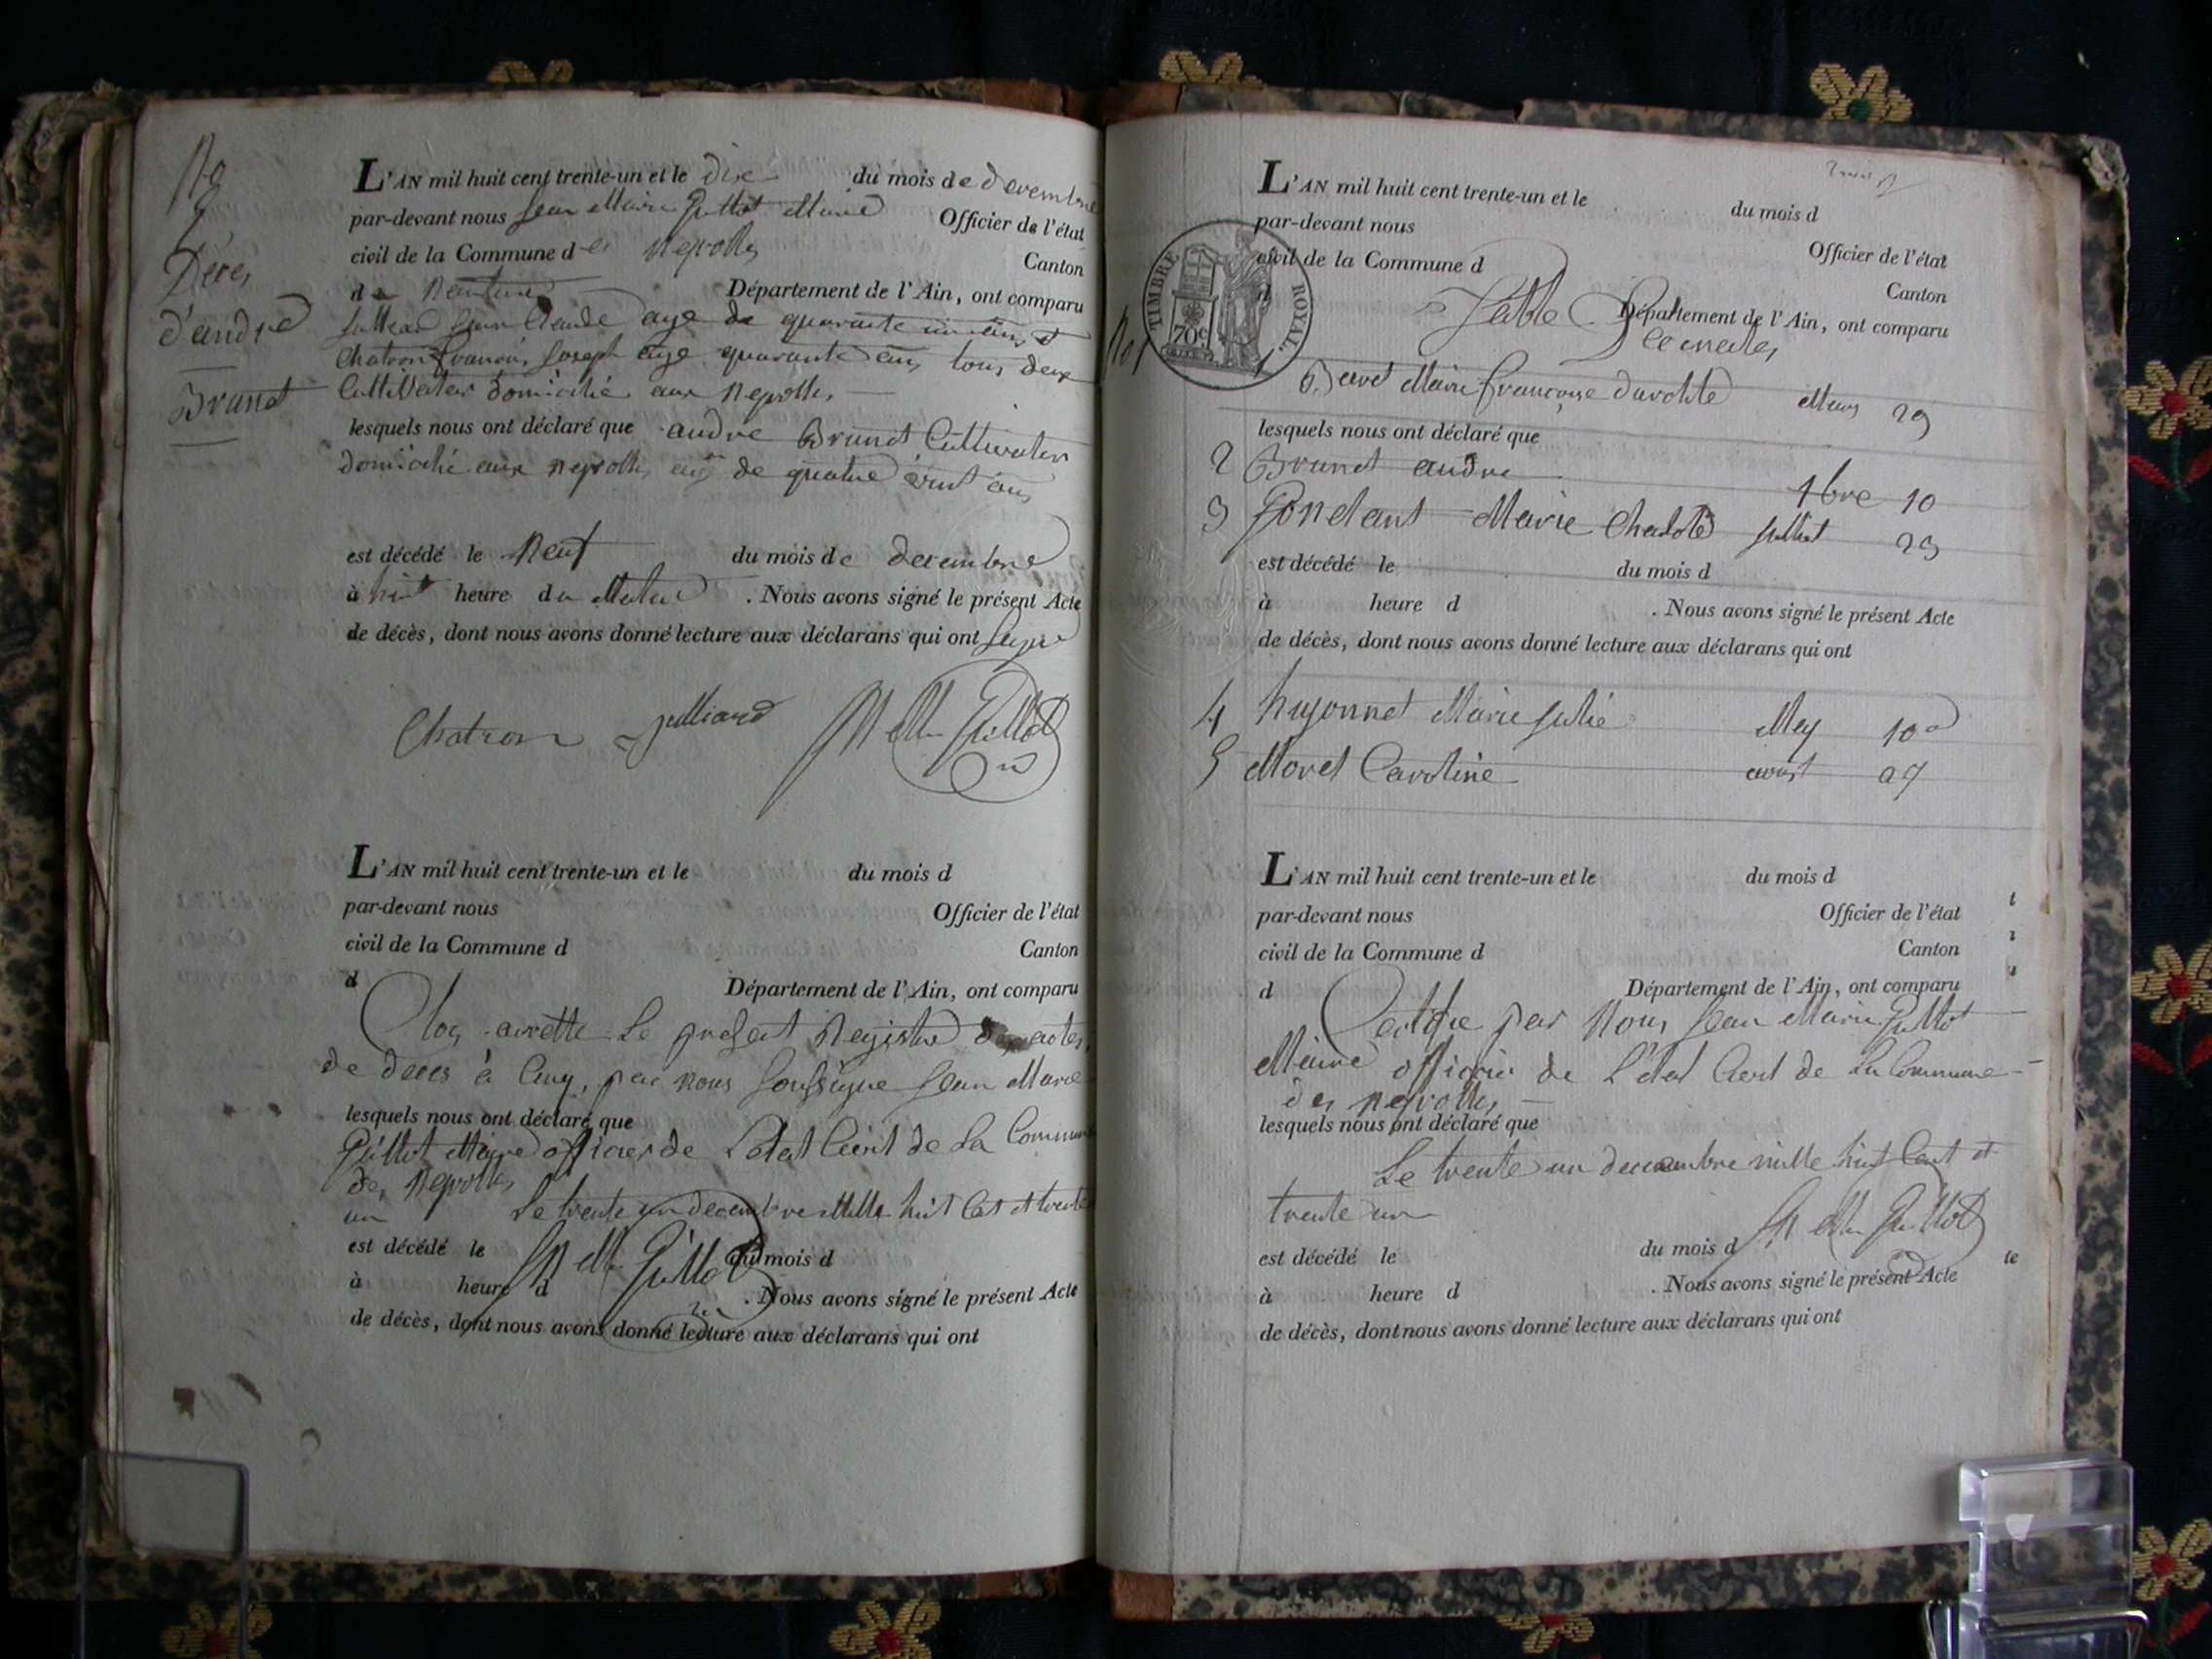 No
5
Décès
d'andre
Brunet
L'AN mil huit cent trente-un et le dix du mois de decembre
par-devant nous Jean Marie Guillot Maire Officier de l'état
civil de la Commune des Neyrolles Canton
de Nantua Département de l'Ain, ont comparu
Julliard Jean Claude age de quarante un ans et
Chatron françois Joseph age quarante ans tous deux
Cultivateur domicilié aux Neyrolles
lesquels nous ont déclaré que andre Brunet Cultivateur
domicilié aux neyrolles age de quatre vint ans
est décédé le Neuf du mois de decembre
à huit heure du Matin . Nous avons signé le présent Acte
de décès, dont nous avons donné lecture aux déclarans qui ont signé
Chatron Julliard Guillot
L'AN mil huit cent trente-un et le du mois d
par-devant nous Officier de l'état
civil de la Commune d Canton
d Département de l'Ain, ont comparu
Clos arrette Le present Registre actes
de deces à Cinq, par nous Soussigne Jean Marie
lesquels nous ont déclaré que
Guillot Maire officier de Letat Civil de La Commune
des Neyrolles
Le trente un decembre Mille huit Cent et trente
un
est décédé le du mois d
Guillot
à heure d . Nous avons signé le présent Acte
de décès, dont nous avons donné lecture aux déclarans qui ont
L'AN mil huit cent trente-un et le du mois d
par-devant nous Officier de l'état
civil de la Commune d Canton
d Département de l'Ain, ont comparu
TIMBRE ROYAL
70c
Table
No 1 Marie françoise Mars 29
lesquels nous ont déclaré que
2 Brunet andre 10
3 Marie juillet 23
est décédé le du mois d
à heure d . Nous avons signé le présent Acte
de décès, dont nous avons donné lecture aux déclarans qui ont
4 hugonnet Marie Julie May 10
5 Moret Caroline aoust 27
L'AN mil huit cent trente-un et le du mois d
par-devant nous Officier de l'état
civil de la Commune d Canton
d Département de l'Ain, ont comparu
par Nous Jean Marie Guillot
Maire officier de L'état Civil de La Commune
des neyrolles
lesquels nous ont déclaré que
Le trente un decembre mille huit Cent et
trente un
Guillot
est décédé le du mois d
à heure d . Nous avons signé le présent Acte
de décès, dont nous avons donné lecture aux déclarans qui ont